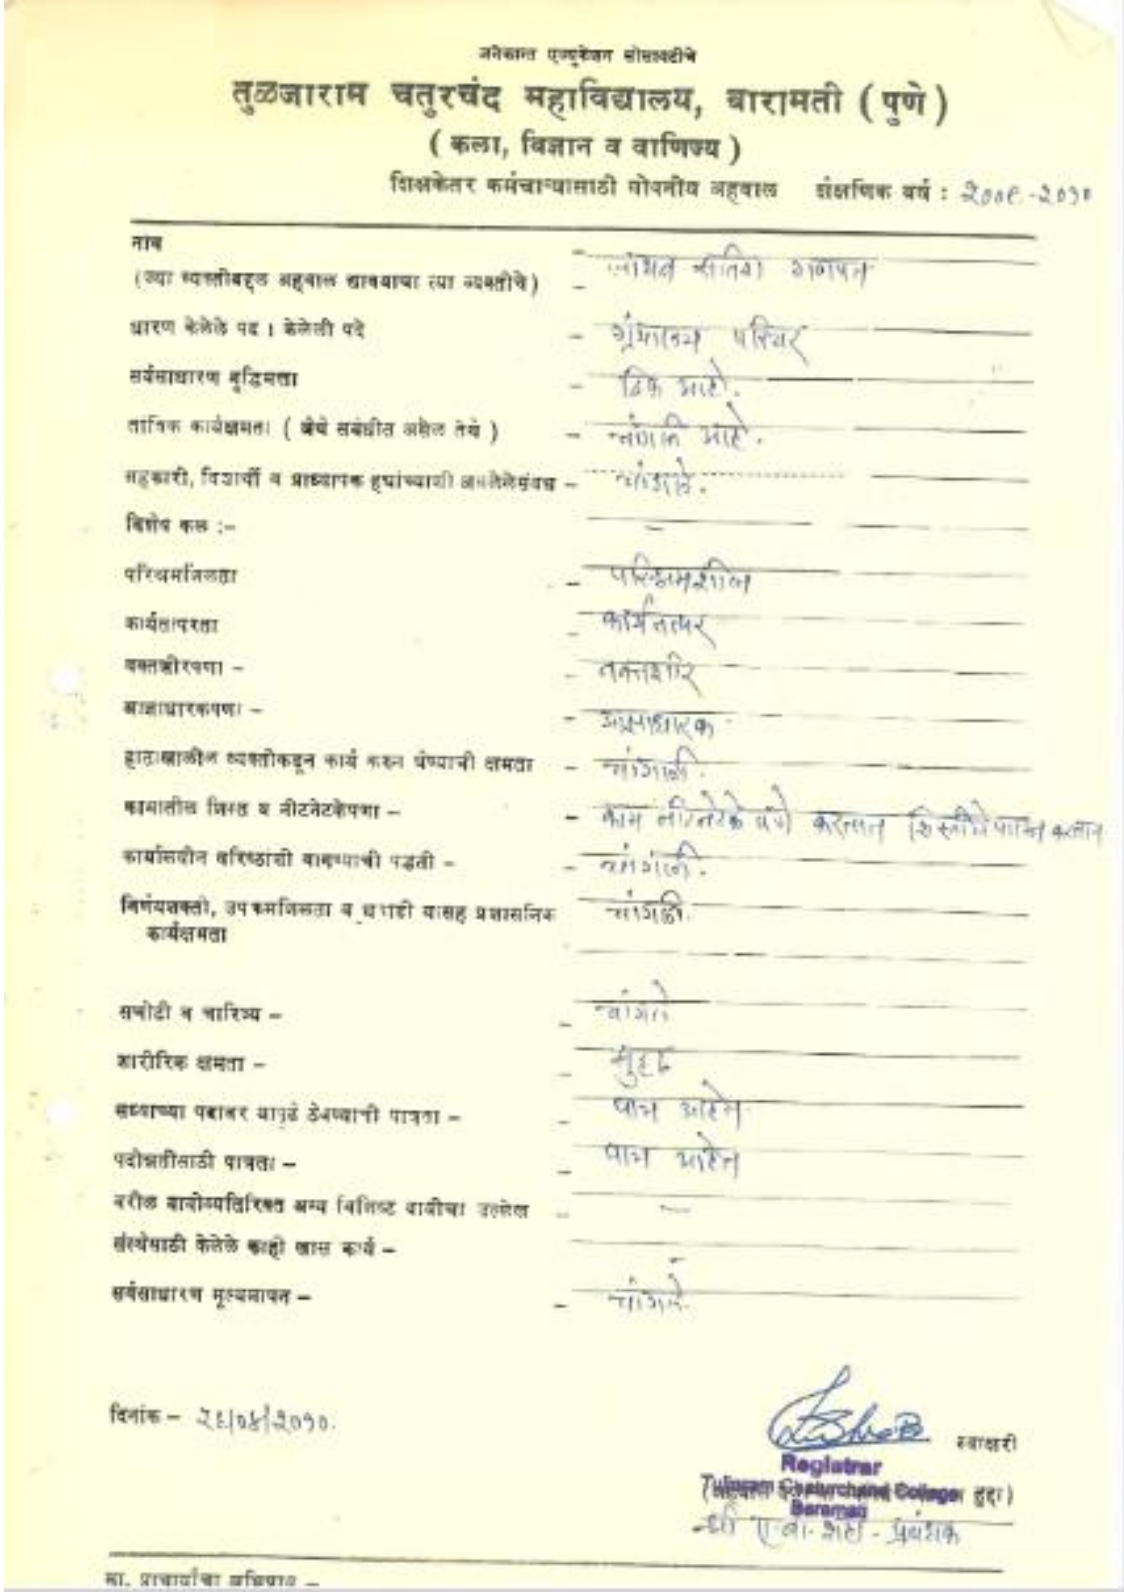 अनेकान्त एज्युकेशन सोसायटीचे
तुळजाराम चतुरचंद महाविद्यालय, बारामती ( पुणे )
( कला, विज्ञान व वाणिज्य )
शिक्षकेतर कर्मचाऱ्यासाठी गोपनीय अहवाल शैक्षणिक वर्ष : २००९-२०१०
नांव
(ज्या व्यक्तीबद्दल अहवाल द्यावयाचा त्या व्यक्तीचे) - गणपत
धारण केलेले पद । केलेली पदे - ग्रंथालय परिचर
सर्वसाधारण बुद्धिमत्ता - ठिक आहे.
तांत्रिक कार्यक्षमता ( जेथे संबंधीत असेल तेथे ) - चांगली आहे.
सहकारी, विद्यार्थी व प्राध्यापक ह्यांच्याशी असलेलेसंबंध - चांगले.
विशेष कल :- -
परिश्रमशिलता - परिश्रमशील
कार्यतत्परता - कार्यतत्पर
वक्तशीरपणा - - वक्तशीर
आज्ञाधारकपणा - - आज्ञाधारक
हाताखालील व्यक्तीकडून कार्य करुन घेण्याची क्षमता - चांगली.
कामातील शिस्त व नीटनेटकेपणा - - काम नीटनेटके पणे करतात शिस्तीचे पालन करतात
कार्यालयीन वरिष्ठांशी वागण्याची पद्धती - - चांगली.
निर्णयशक्ती, उपक्रमशिलता व यासह प्रशासनिक चांगली.
कार्यक्षमता
सचोटी व चारित्र्य - - चांगले
शारीरिक क्षमता - - सुदृढ
सध्याच्या पदावर यापुढे ठेवण्याची पात्रता - - पात्र आहेत.
पदोन्नतीसाठी पात्रता - - पात्र आहेत
वरील बाबीव्यतिरिक्त अन्य विशिष्ट बाबींचा उल्लेख - -
संस्थेसाठी केलेले काही खास कार्य - -
सर्वसाधारण मूल्यमापन - - चांगले.
दिनांक - २६/०४/२०१०.
स्वाक्षरी
Registrar
Tuljaram Chaturchand College हुद्दा)
Baramati
श्री ए.वा. शहा - प्रबंधक
मा. प्राचार्यांचा अभिप्राय -